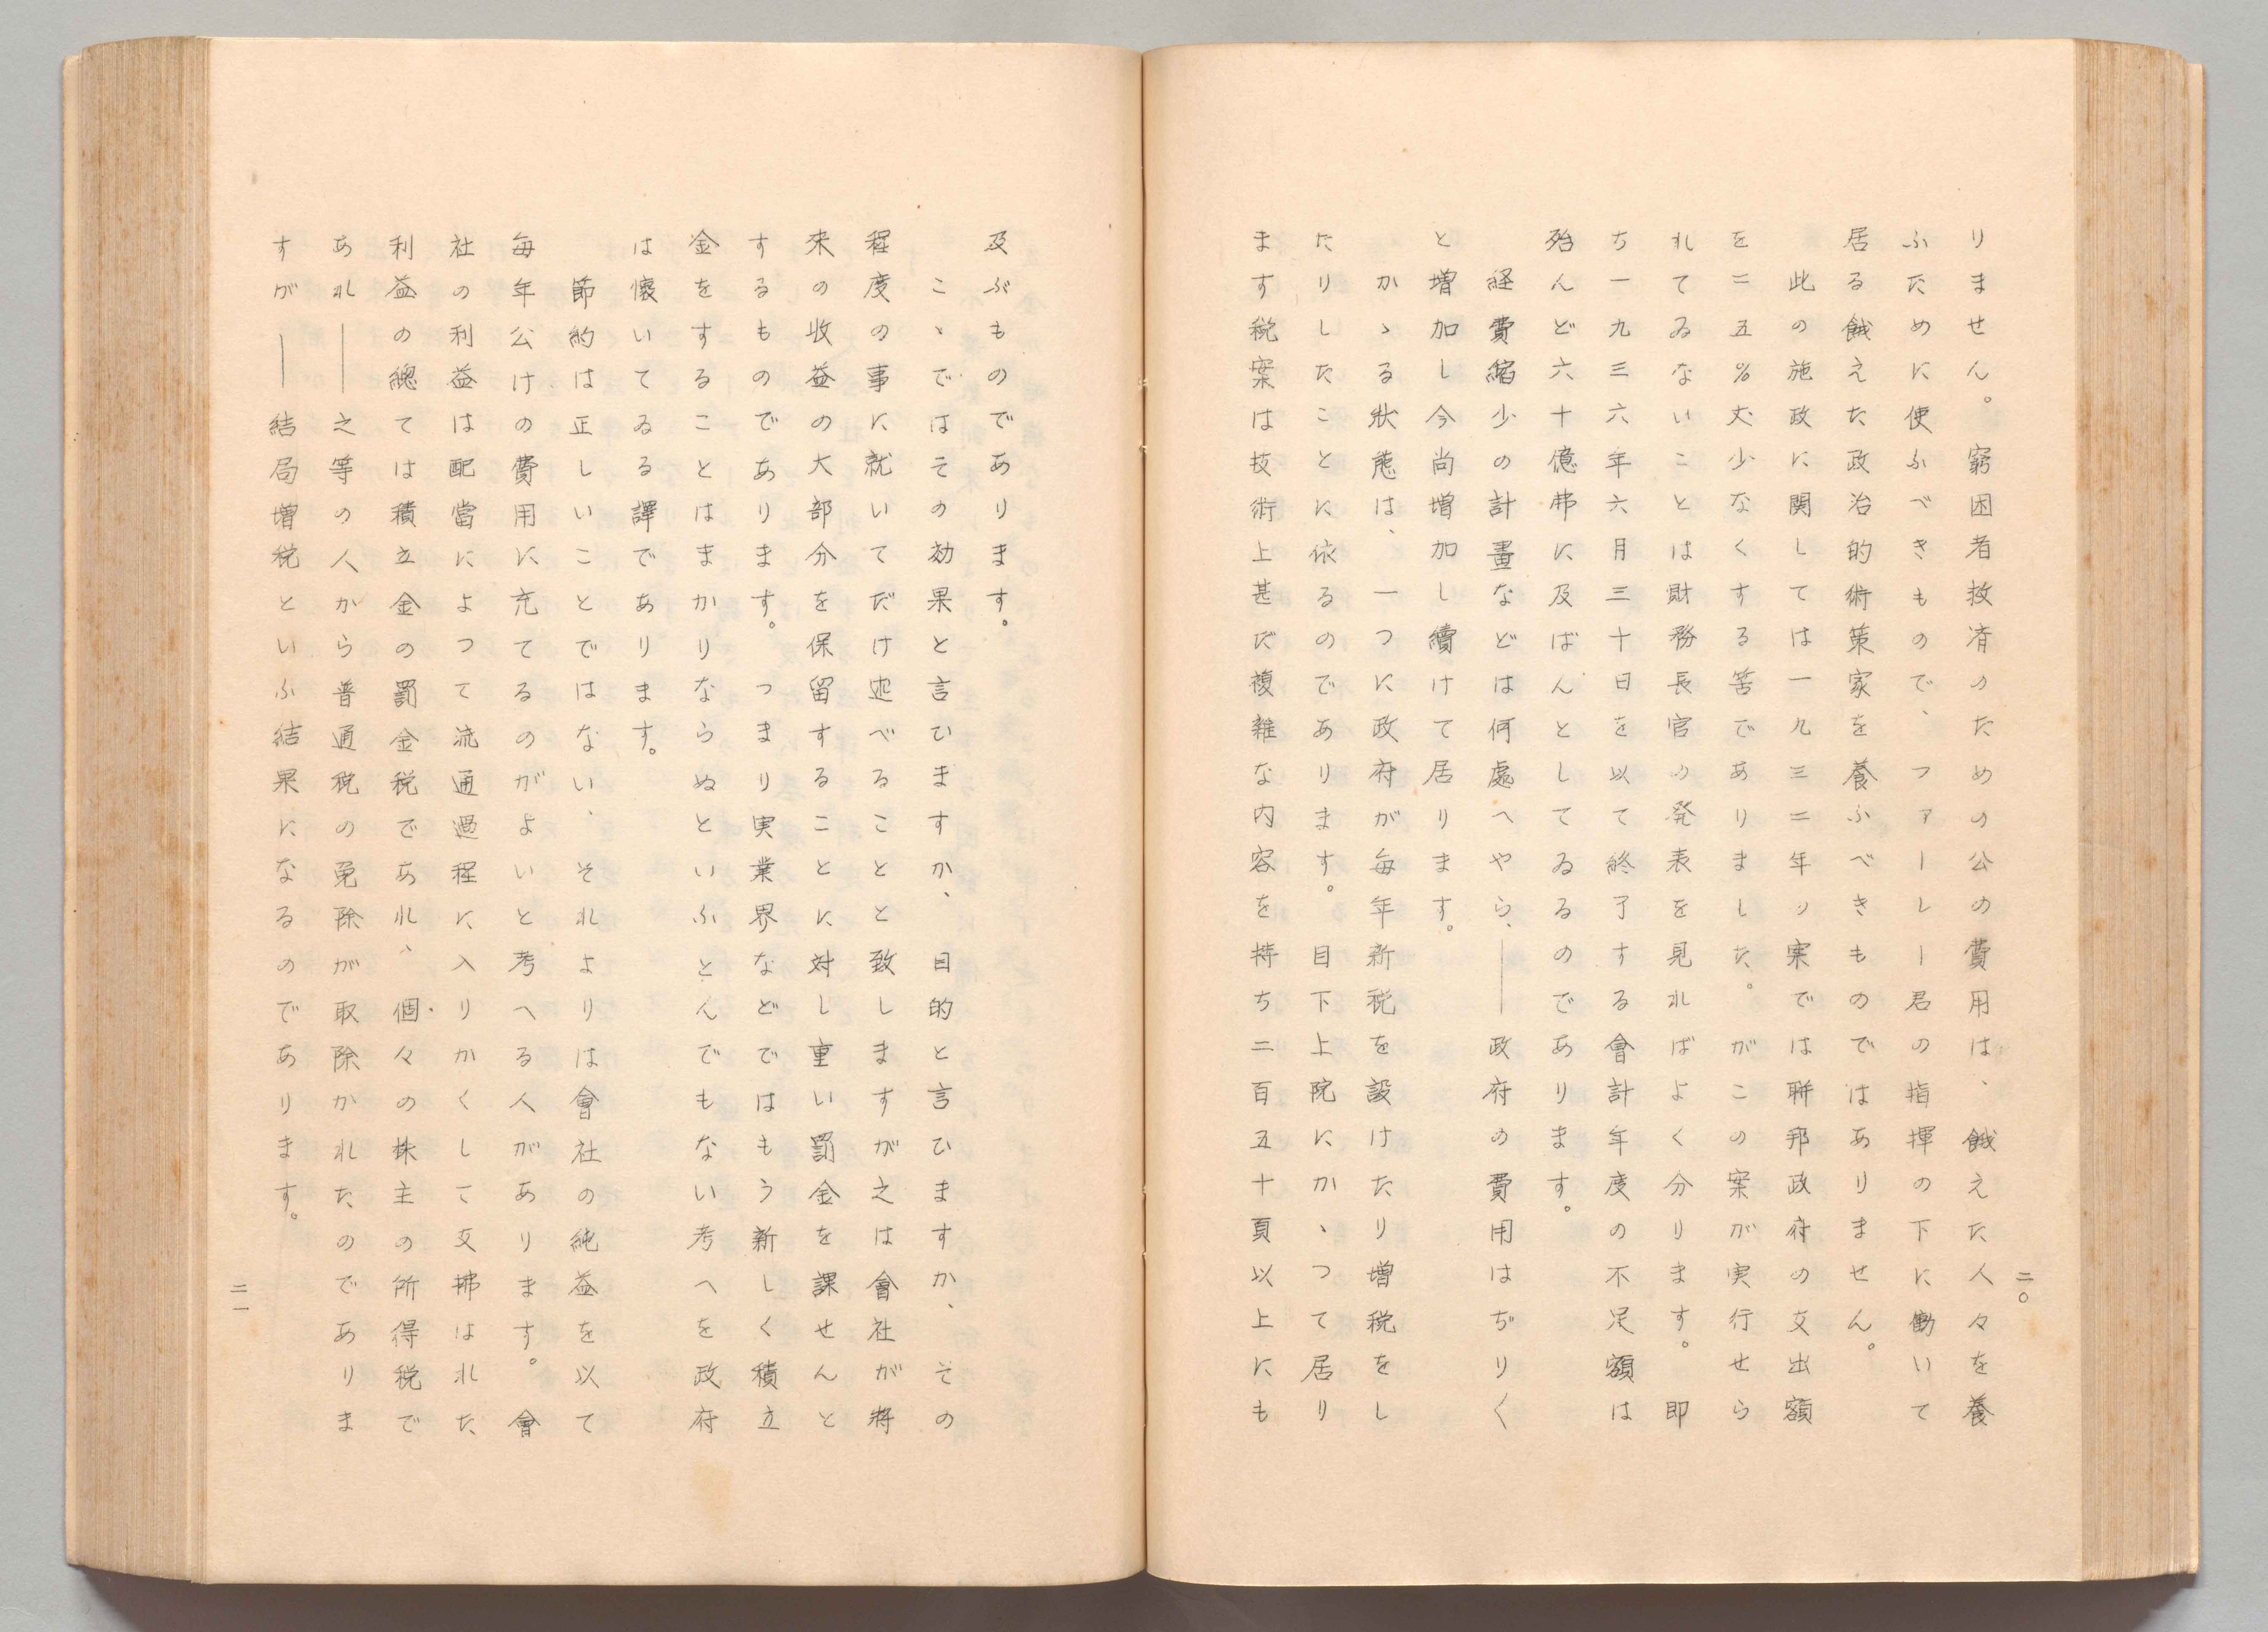 二〇
りません。窮困者救済のための公の費用は、餓えた人々を養
ふために使ふべきもので、ファーレー君の指揮の下に働いて
居る餓えた政治的術策家を養ふべきものではありません。
此の施政に関しては一九三二年の案では聯邦政府の支出額
を二五%丈少なくする筈でありました。がこの案が実行せら
れてゐないことは財務長官の発表を見ればよく分ります。即
ち一九三六年六月三十日を以て終了する會計年度の不足額は
殆んど六十億弗に及ばんとしてゐるのであります。
経費縮少の計畫などは何處へやら、――政府の費用はぢりく
と増加し今尚増加し續けて居ります。
かゝる状態は、一つに政府が毎年新税を設けたり増税をし
たりしたことに依るのであります。目下上院にかゝつて居り
ます税案は技術上甚だ複雑な内容を持ち二百五十頁以上にも
及ぶものであります。
こゝではその効果と言ひますか、目的と言ひますか、その
程度の事に就いてだけ述べることと致しますが之は會社が將
来の收益の大部分を保留することに対し重い罰金を課せんと
するものであります。つまり実業界などではもう新しく積立
金をすることはまかりならぬといふとんでもない考へを政府
は懐いてゐる譯であります。
節約は正しいことではない、それよりは會社の純益を以て
毎年公けの費用に充てるのがよいと考へる人があります。會
社の利益は配當によつて流通過程に入りかくして支拂はれた
利益の總ては積立金の罰金税であれ、個々の株主の所得税で
あれ――之等の人から普通税の免除が取除かれたのでありま
すが――結局増税といふ結果になるのであります。
二一